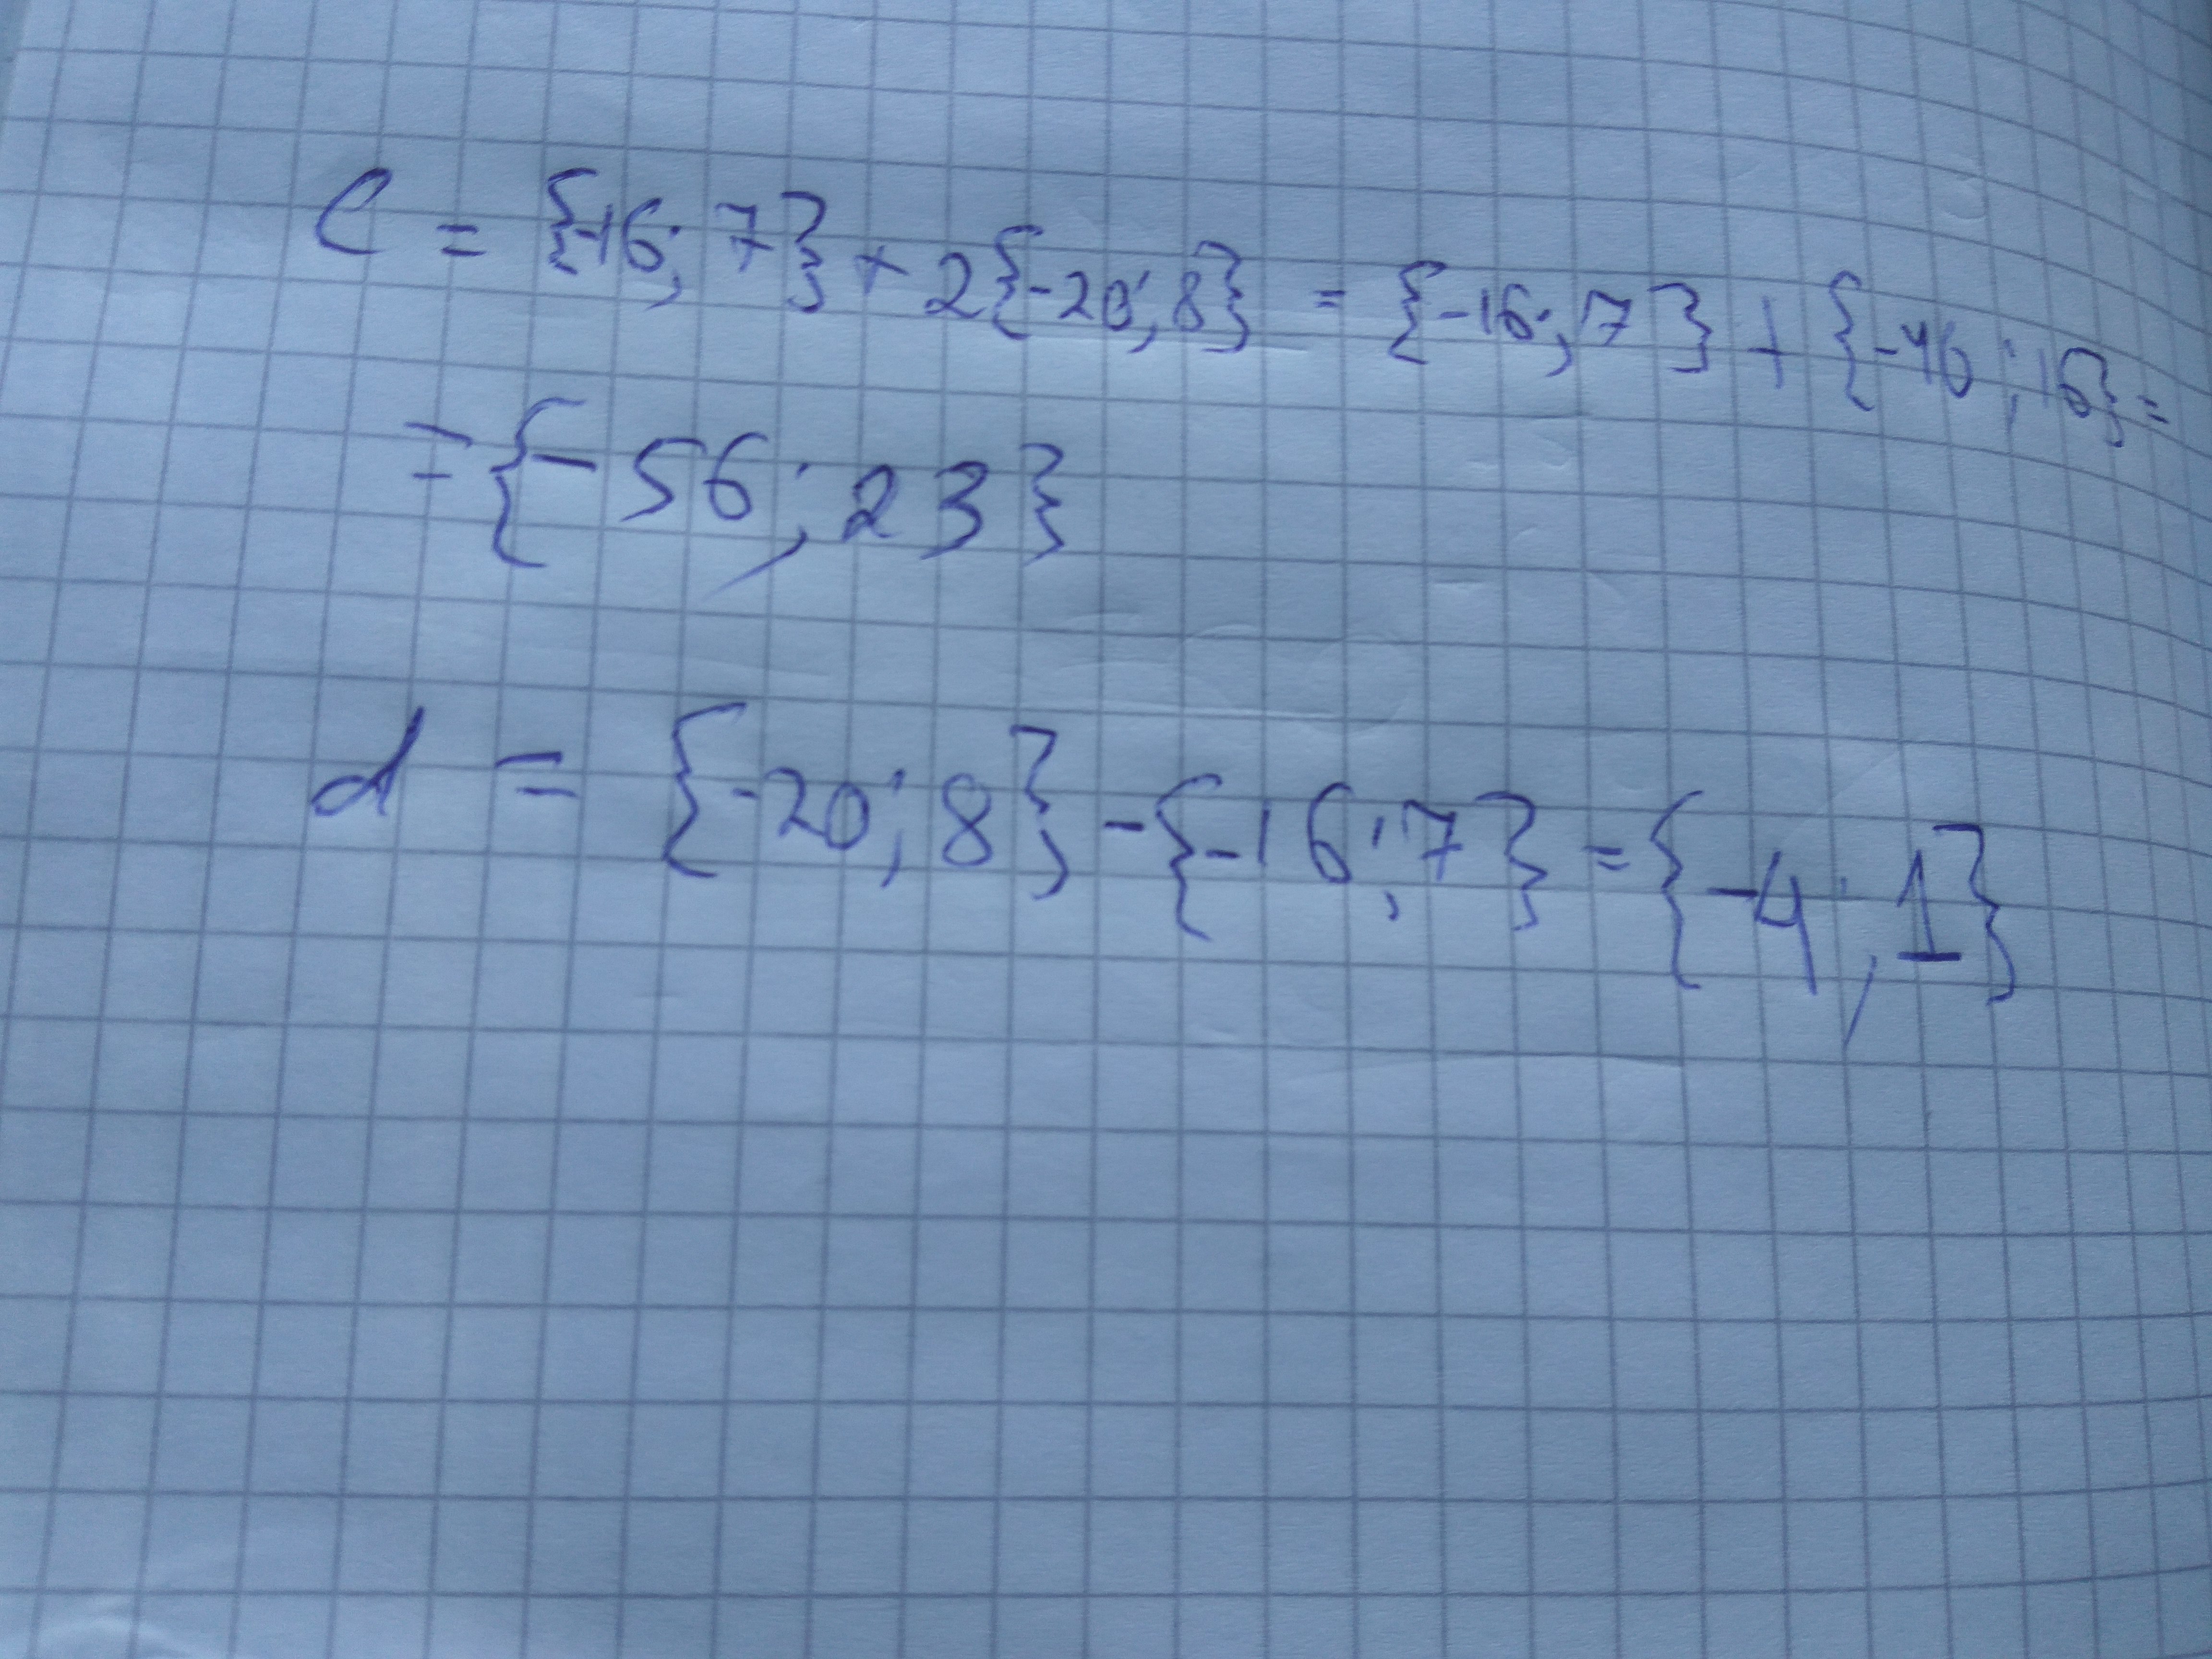 C = {-16; 7} + 2{-20; 8} = {-16; 7} + {-40; 16} =
= {-56; 23}
d = {-20; 8} - {-16; 7} = {-4; 1}